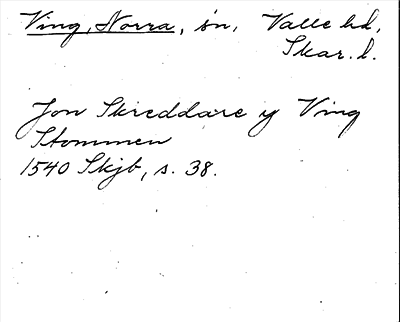 Ving, Norra, sn, Valle hd,
Skar. l.
Jon Skreddare y Ving
Stommen
1540 Skjb, s. 38.